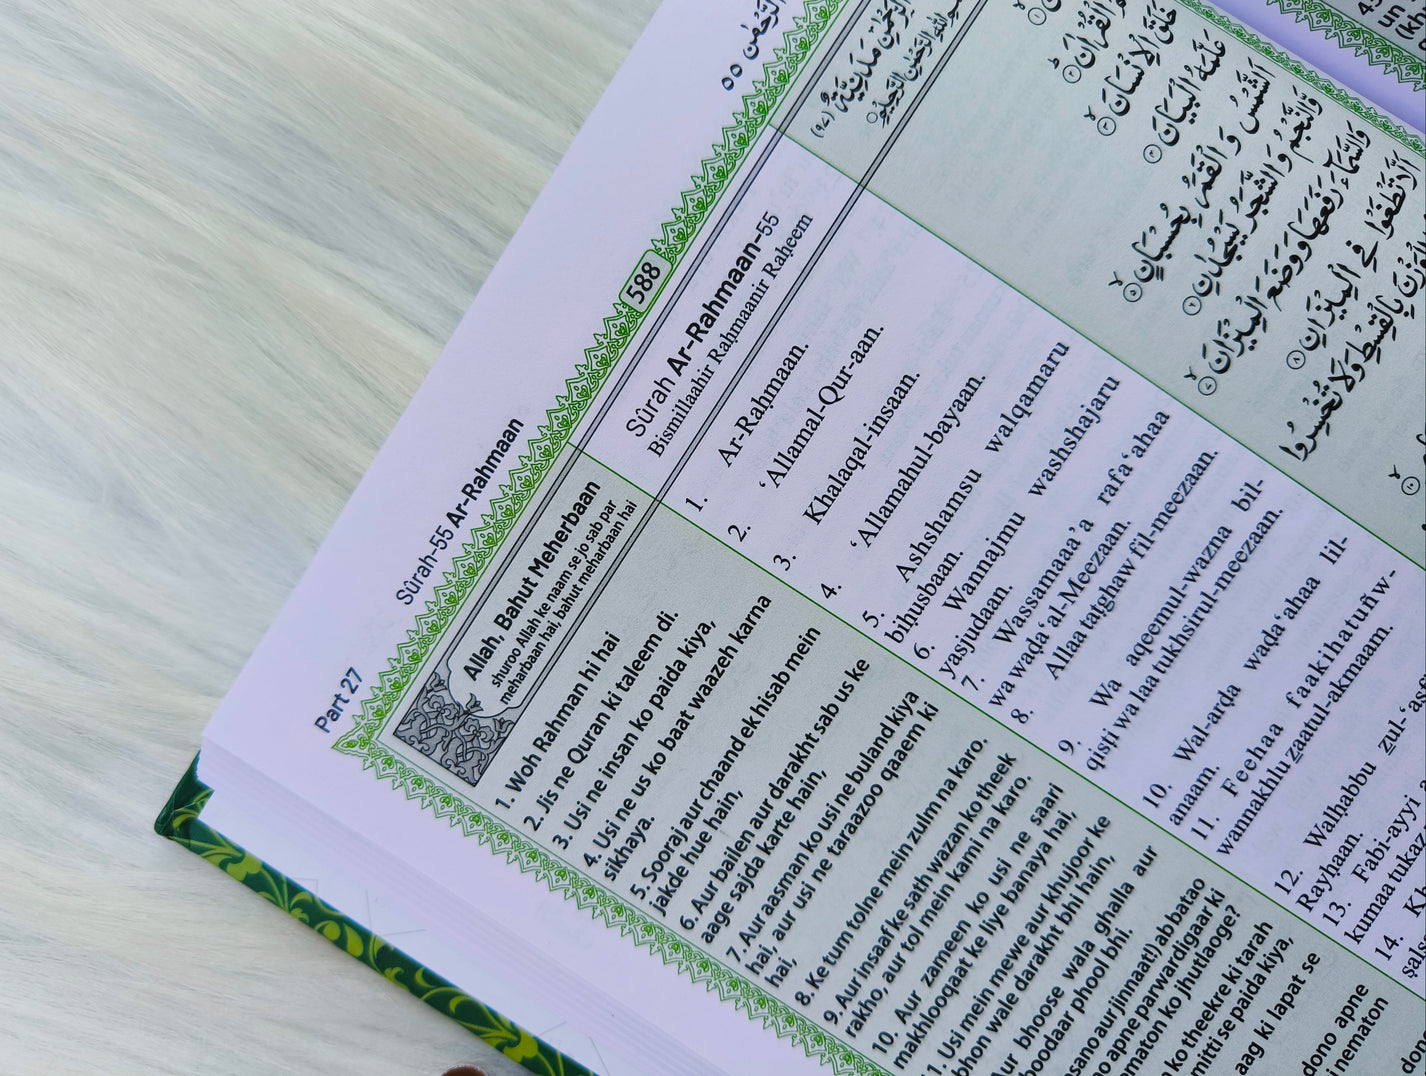 Part 27
Sûrah-55 Ar-Rahmaan
588
Allah, Bahut Meherbaan
shuroo Allah ke naam se jo sab par
meharbaan hai, bahut meharbaan hai
1. Woh Rahman hi hai
2. Jis ne Quran ki taleem di.
3. Usi ne insan ko paida kiya,
4. Usi ne us ko baat waazeh karna
sikhaya.
5. Sooraj aur chaand ek hisab mein
jakde hue hain,
6. Aur bailen aur darakht sab us ke
aage sajda karte hain,
7. Aur aasman ko usi ne buland kiya
hai, aur usi ne taraazoo qaaem ki
hai,
8. Ke tum tolne mein zulm na karo.
9. Aur insaaf ke sath wazan ko theek
rakho, aur tol mein kami na karo.
10. Aur zameen ko usi ne saari
makhlooqaat ke liye banaya hai,
11. Usi mein mewe aur khujoor ke
bhon wale darakht bhi hain,
Aur bhoose wala ghalla aur
boodaar phool bhi.
aur jinnaat!) ab batao
apne parwardigaar ki
ko jhutlaoge?
ko theekre ki tarah
mitti se paida kiya,
aag ki lapat se
dono apne
nematon
Sûrah Ar-Rahmaan-55
Bismillaahir Rahmaanir Raheem
1. Ar-Raḥmaan.
2. ‘Allamal-Qur-aan.
3. Khalaqal-insaan.
4. ‘Allamahul-bayaan.
5. Ashshamsu walqamaru
biḥusbaan.
6. Wannajmu washshajaru
yasjudaan.
7. Wassamaaa’a rafa‘ahaa
wa wada‘al-Meezaan.
8. Allaa tatghaw fil-meezaan.
9. Wa aqeemul-wazna bil-
qisṭi wa laa tukhsirul-meezaan.
10. Wal-arda wada‘ahaa lil-
anaam.
11. Feehaa faakihatuñw-
wannakhlu zaatul-akmaam.
12. Walhabbu zul-‘
Rayhaan.
13. Fabi-ayyi
kumaa tukaz
14.
الرَّحْمٰن ٥٥
الرَّحْمٰنِ مَدَنِيَّةٌ (٩٧)
بِسْمِ اللّٰهِ الرَّحْمٰنِ الرَّحِيْمِ
الْقُرْاٰنَ
خَلَقَ الْاِنْسَانَ
عَلَّمَهُ الْبَيَانَ
اَلشَّمْسُ وَ الْقَمَرُ بِحُسْبَانٍ
وَّالنَّجْمُ وَ الشَّجَرُ يَسْجُدٰنِ
وَالسَّمَآءَ رَفَعَهَا وَوَضَعَ الْمِيْزَانَ
اَلَّا تَطْغَوْا فِي الْمِيْزَانِ
الْوَزْنَ بِالْقِسْطِ وَلَا تُخْسِرُوا